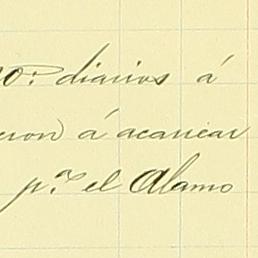 no: diarios á
eron) á acarrear
pª el Alamo